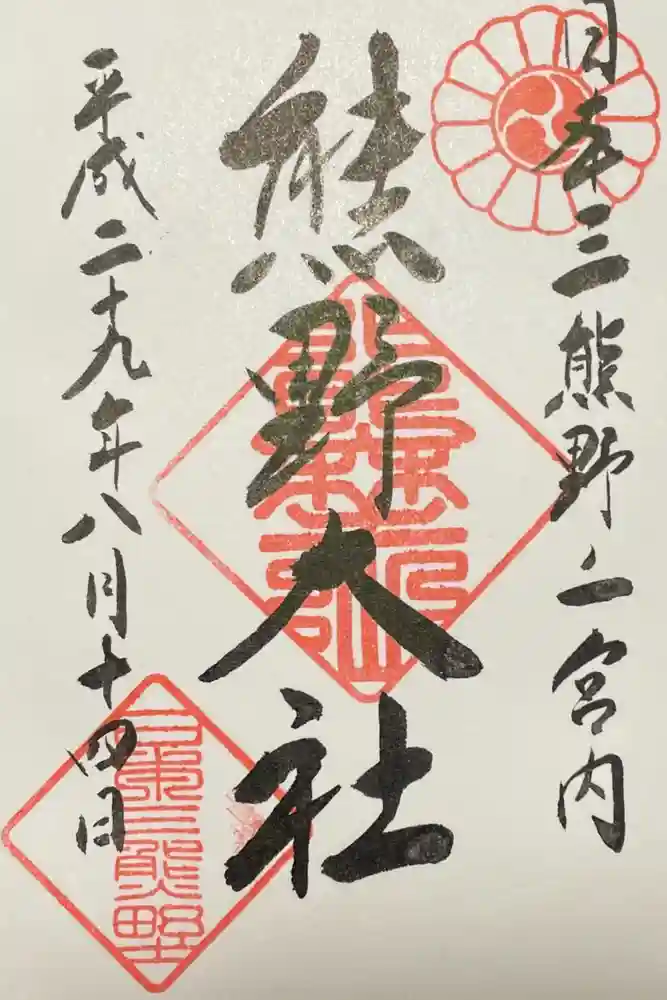 日本三熊野之宮内
熊野大社
平成二十九年八月十四日
日本三熊野